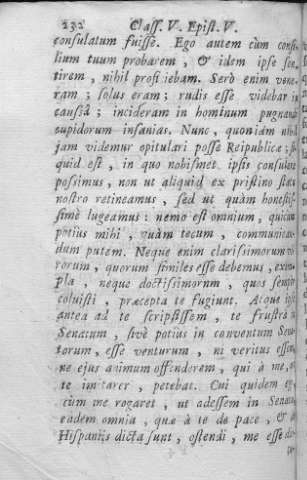 232 Class. V. Epist. V.
consulatum fuisse. Ego autem cùm consi-
lium tuum probarem, & idem ipse sen-
tirem, nihil proficiebam. Serò enim vene-
ram; solus eram; rudis esse videbar in
causâ; incideram in hominum pugnandi
cupidorum insanias. Nunc, quoniam nihil
jam videmur opitulari posse Reipublicæ; si
quid est, in quo nobismet ipsis consulere
possimus, non ut aliquid ex pristino statu
nostro retineamus, sed ut quàm honestis-
simè lugeamus: nemo est omnium, quicum
potius mihi, quàm tecum, communican-
dum putem. Neque enim clarissimorum vi-
rorum, quorum similes esse debemus, exem-
pla, neque doctissimorum, quos semper
coluisti, præcepta te fugiunt. Atque ipse
antea ad te scripsissem, te frustrà in
Senatum, sivè potius in conventum Sena-
torum, esse venturum, ni veritus essem,
ne ejus animum offenderem, qui à me, ut
te imitarer, petebat. Cui quidem ego,
cùm me rogaret, ut adessem in Senatu,
eadem omnia, quæ à te de pace, & de
Hispaniis dicta sunt, ostendi, me esse di-